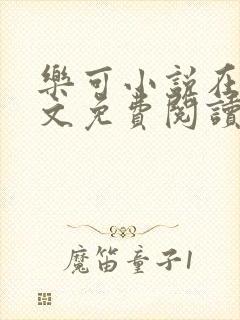 樂可小説在
文免費閱讀
魔笛童子1